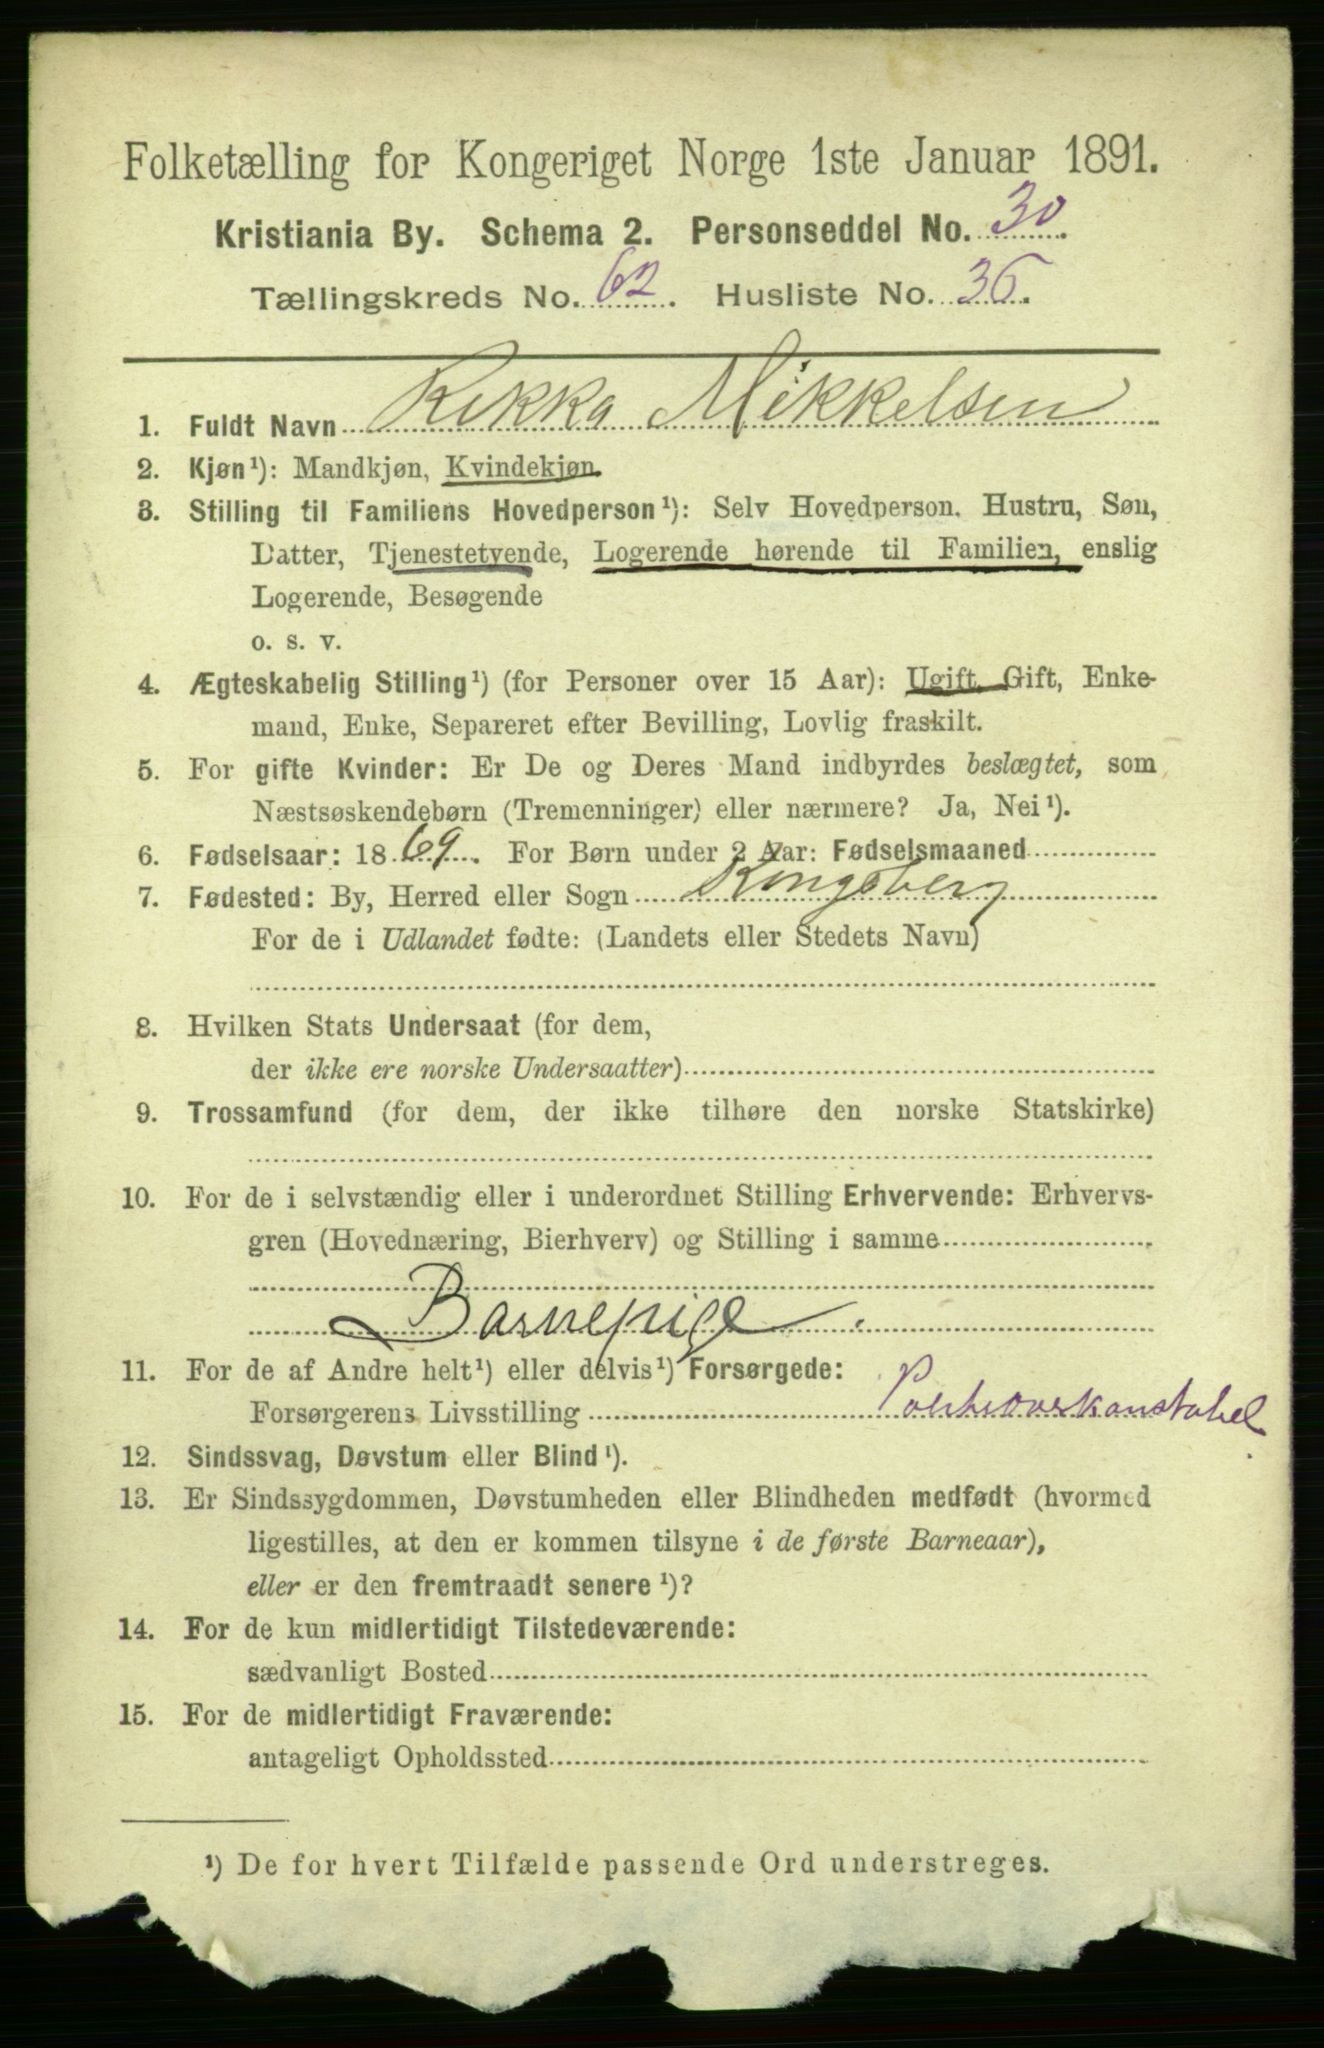 Folketælling for Kongeriget Norge 1ste Januar 1891.
Kristiania By. Schema 2. Personseddel No. 30.
Tællingskreds No. 62. Husliste No. 36.
1. Fuldt Navn Rikka Mikkelsen
2. Kjøn¹): Mandkjøn, Kvindekjøn.
3. Stilling til Familiens Hovedperson¹): Selv Hovedperson. Hustru, Søn,
Datter, Tjenestetyende, Logerende hørende til Familien, enslig
Logerende, Besøgende
o. s. v.
4. Ægteskabelig Stilling¹) (for Personer over 15 Aar): Ugift, Gift, Enke-
mand, Enke, Separeret efter Bevilling, Lovlig fraskilt.
5. For gifte Kvinder: Er De og Deres Mand indbyrdes beslægtet, som
Næstsøskendebørn (Tremenninger) eller nærmere? Ja, Nei¹).
6. Fødselsaar: 1869. For Børn under 2 Aar: Fødselsmaaned
7. Fødested: By, Herred eller Sogn Kongsberg
For de i Udlandet fødte: (Landets eller Stedets Navn)
8. Hvilken Stats Undersaat (for dem,
der ikke ere norske Undersaatter)
9. Trossamfund (for dem, der ikke tilhøre den norske Statskirke)
10. For de i selvstændig eller i underordnet Stilling Erhvervende: Erhvervs-
gren (Hovednæring, Bierhverv) og Stilling i samme
Barnepige.
11. For de af Andre helt¹) eller delvis¹) Forsørgede:
Forsørgerens Livsstilling Politioverkonstabel
12. Sindssvag, Døvstum eller Blind¹).
13. Er Sindssygdommen, Døvstumheden eller Blindheden medfødt (hvormed
ligestilles, at den er kommen tilsyne i de første Barneaar),
eller er den fremtraadt senere¹)?
14. For de kun midlertidigt Tilstedeværende:
sædvanligt Bosted
15. For de midlertidigt Fraværende:
antageligt Opholdssted
¹) De for hvert Tilfælde passende Ord understreges.